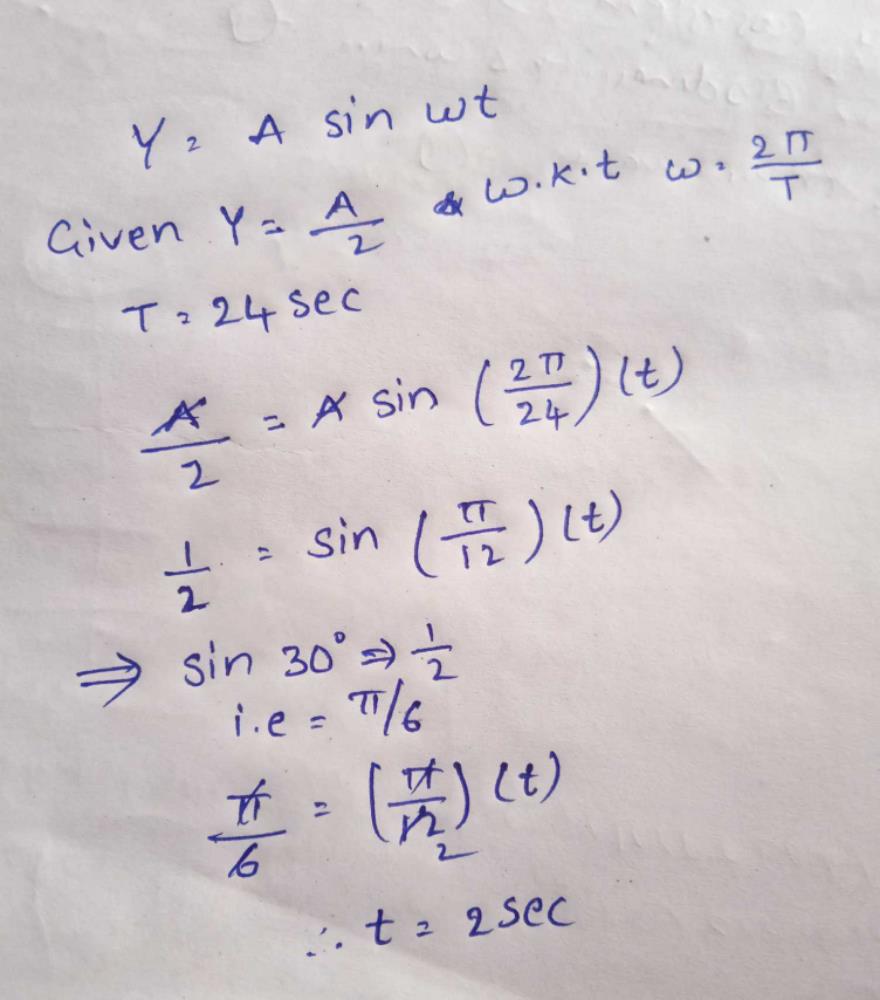 Y = A sin wt
Given Y = A/2 & w.k.t ω = 2π/T
T = 24 sec
A/2 = A sin (2π/24) (t)
1/2 = sin (π/12) (t)
⇒ sin 30° ⇒ 1/2
i.e = π/6
π/6 = (π/12) (t)
2
∴ t = 2 sec